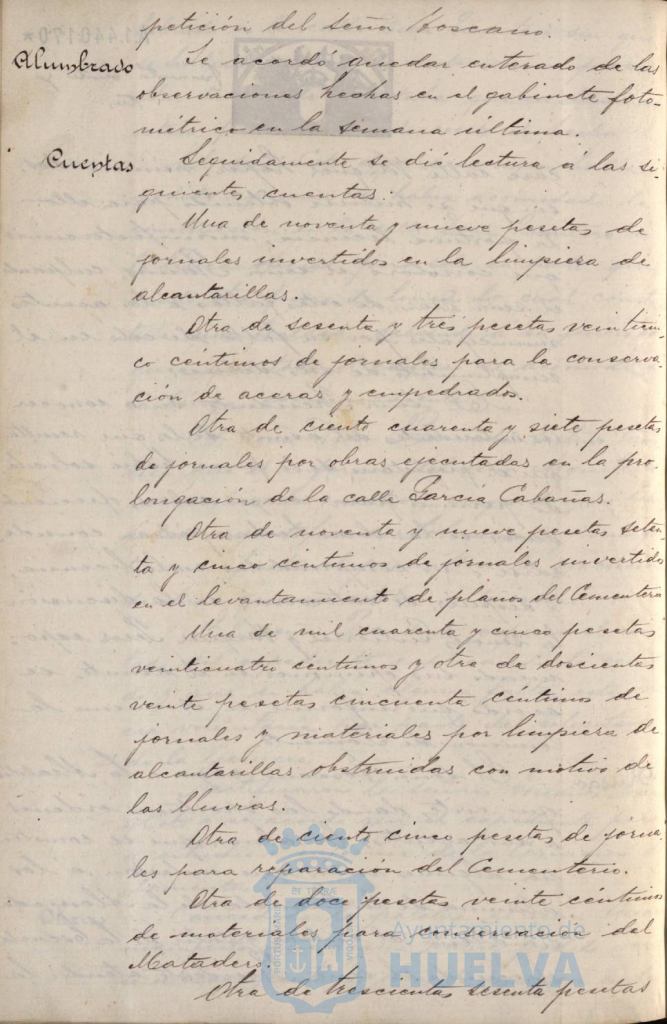 petición del señor Toscano.
Alumbrado
Se acordó quedar enterado de las
observaciones hechas en el gabinete foto-
métrico en la semana última.
Cuentas
Seguidamente se dió lectura á las si-
guientes cuentas:
Una de noventa y nueve pesetas de
jornales invertidos en la limpieza de
alcantarillas.
Otra de sesenta y tres pesetas veinticin-
co céntimos de jornales para la conserva-
ción de aceras y empedrados.
Otra de ciento cuarenta y siete pesetas
de jornales por obras ejecutadas en la pro-
longación de la calle García Cabañas.
Otra de noventa y nueve pesetas seten-
ta y cinco céntimos de jornales invertidos
en el levantamiento de planos del Cementerio
Una de mil cuarenta y cinco pesetas
veinticuatro céntimos y otra de doscientas
veinte pesetas cincuenta céntimos de
jornales y materiales por limpieza de
alcantarillas obstruidas con motivo de
las lluvias.
Otra de ciento cinco pesetas de jorna-
les para reparación del Cementerio.
Otra de doce pesetas veinte céntimos
de materiales para conservación del
Matadero.
Otra de trescientas sesenta pesetas
Ayuntamiento de
HUELVA